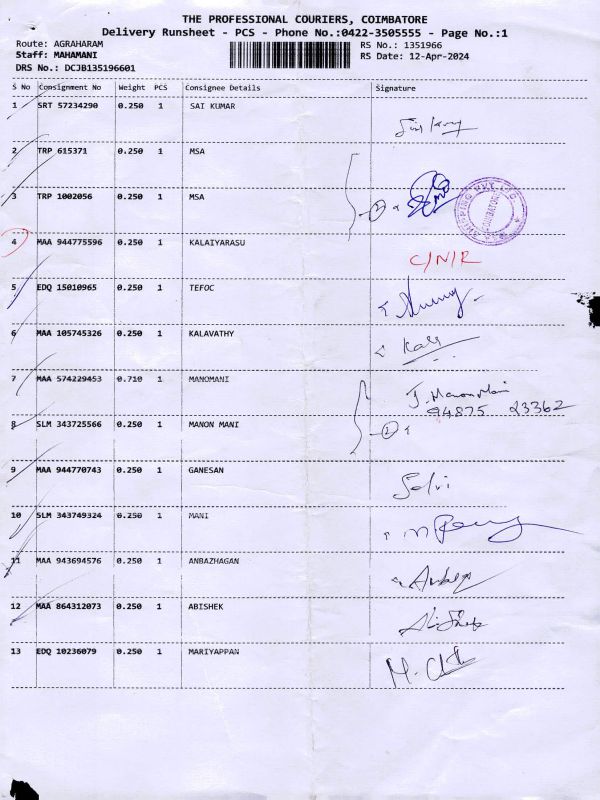 THE PROFESSIONAL COURIERS, COIMBATORE
Delivery Runsheet - PCS - Phone No.:0422-3505555 - Page No.:1
Route: AGRAHARAM RS No.: 1351966
Staff: MAHAMANI RS Date: 12-Apr-2024
DRS No.: DCJB135196601
S No Consignment No Weight PCS Consignee Details Signature
1 SRT 57234290 0.250 1 SAI KUMAR
2 TRP 615371 0.250 1 MSA
3 TRP 1002056 0.250 1 MSA
2
4 MAA 944775596 0.250 1 KALAIYARASU
C/N/R
5 EDQ 15010965 0.250 1 TEFOC
6 MAA 105745326 0.250 1 KALAVATHY
7 MAA 574229453 0.710 1 MANOMANI
J. Manonmani
94875 23362
8 SLM 343725566 0.250 1 MANON MANI
2
9 MAA 944770743 0.250 1 GANESAN
Selvi
10 SLM 343749324 0.250 1 MANI
11 MAA 943694576 0.250 1 ANBAZHAGAN
12 MAA 864312073 0.250 1 ABISHEK
13 EDQ 10236079 0.250 1 MARIYAPPAN